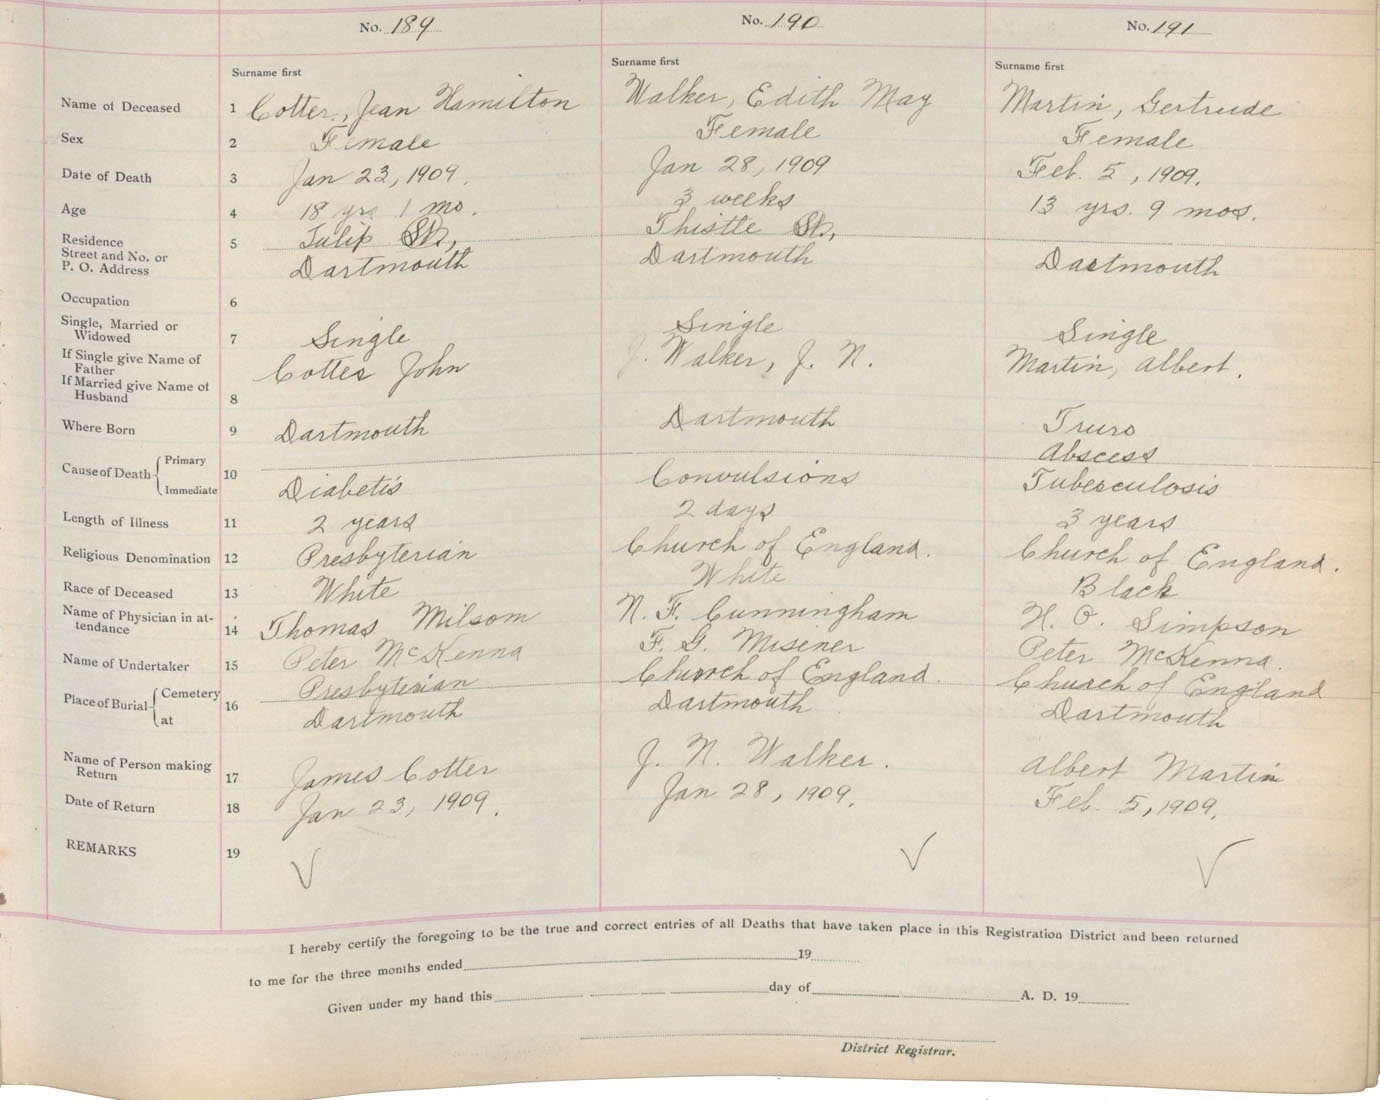 No. 189 No. 190 No. 191
Surname first Surname first Surname first
Name of Deceased 1 Cotter, Jean Hamilton Walker, Edith May Martin, Gertrude
Sex 2 Female Female Female
Date of Death 3 Jan 23, 1909. Jan 28, 1909 Feb. 5, 1909.
Age 4 18 yrs 1 mo. 3 weeks 13 yrs. 9 mos.
Residence 5 Tulip St., Thistle St.,
Street and No. or
P. O. Address Dartmouth Dartmouth Dartmouth
Occupation 6
Single, Married or
Widowed 7 Single Single Single
If Single give Name of
Father Cotter John J. Walker, J. N. Martin, Albert.
If Married give Name of
Husband 8
Where Born 9 Dartmouth Dartmouth Truro
Cause of Death Primary 10 Abscess
Immediate Diabetis Convulsions Tuberculosis
Length of Illness 11 2 years 2 days 3 years
Religious Denomination 12 Presbyterian Church of England. Church of England.
Race of Deceased 13 White White Black
Name of Physician in at-
tendance 14 Thomas Milsom N. F. Cunningham H. O. Simpson
Name of Undertaker 15 Peter McKenna F. G. Misener Peter McKenna.
Place of Burial Cemetery 16 Presbyterian Church of England. Church of England
at Dartmouth Dartmouth Dartmouth
Name of Person making
Return 17 James Cotter J. N. Walker. Albert Martin
Date of Return 18 Jan 23, 1909. Jan 28, 1909. Feb. 5, 1909.
REMARKS 19 √ √ √
I hereby certify the foregoing to be the true and correct entries of all Deaths that have taken place in this Registration District and been returned
to me for the three months ended 19
Given under my hand this day of A. D. 19
District Registrar.